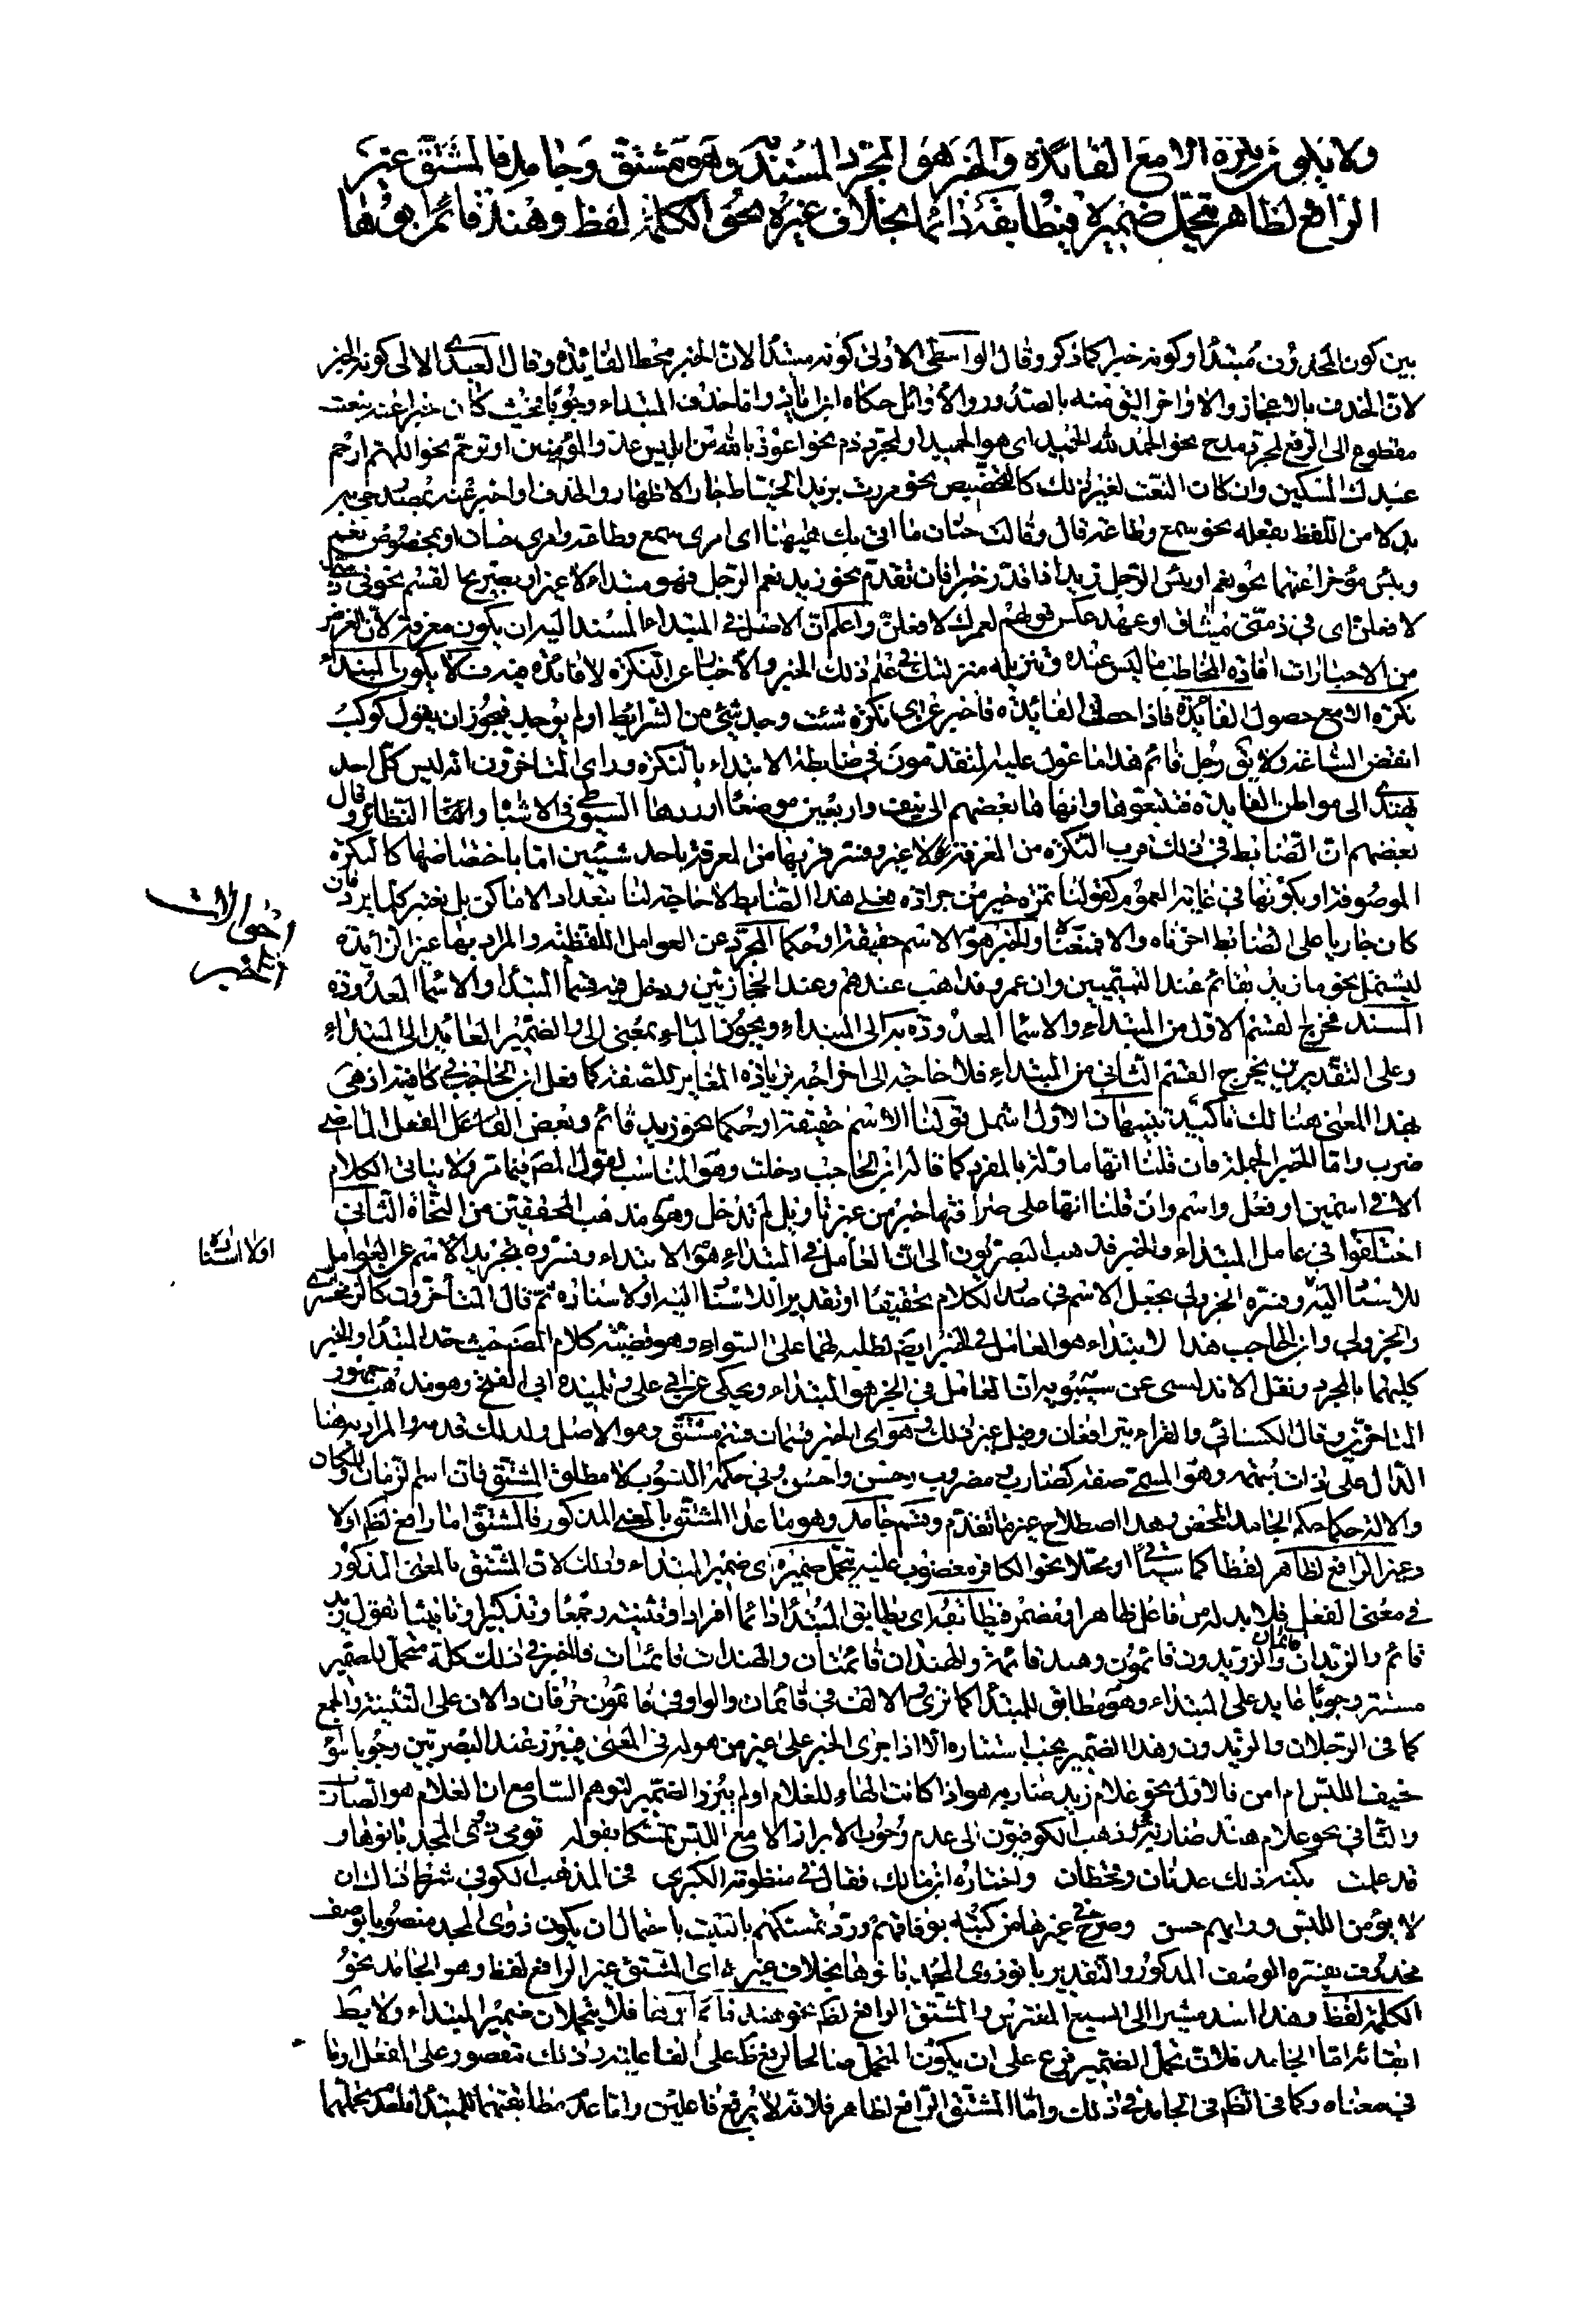 ولا يكون نكرة الا مع الفائدة والخبر هو المجرد المسند به وهو مشتق وجامد فالمشتق غير
الرافع لظاهر متحمل ضميره فيطابقه دائما بخلاف غيره نحو الكلمة لفظ وهند قائم ابوها
بين كون المحذوف مبتدأ وكونه خبرا كما ذكر وقال الواسطى الاولى كونه مبتدأ لان الخبر محط الفايدة وقال العبدى الاولى كونه الخبر
لان الحذف بالاعجاز والاواخر اليق منه بالصدور والأوائل حكاه ابن اياز واما حذف المبتداء وجوبا فحيث كان خبرا عنه بنعت
مقطوع الى الرفع لمجرد مدح نحو الحمد لله الحميد اى هو الحميد او لمجرد ذم نحو اعوذ بالله من ابليس عدو المؤمنين او ترحم نحو اللهم ارحم
عبدك المسكين وان كان النعت لغير ذلك كالتخصيص نحو مررت بزيد الخياط جاز الاظهار والحذف او اخبر عنه بمصدر جئ به
بدلا من اللفظ بفعله نحو سمع وطاعة قال وقالت حنان ما اتى بك ههنا اى امرى سمع وطاعة وامرى حنان او بمخصوص نعم
وبئس مؤخرا عنهما نحو نعم او بئس الرجل زيد اذا قدر خبرا فان تقدم نحو زيد نعم الرجل فهو مبتداء لا غير او بصريح القسم نحو فى ذمتى
لافعلن اى فى ذمتى ميثاق او عهد عكس قولهم لعمرك لافعلن واعلم ان الاصل فى المبتداء المسند اليه ان يكون معرفة لان الغرض
من الاخبارات افادة المخاطب ما ليس عنده وتنزيله منزلتك فى علم ذلك الخبر والاخبار عن النكرة لا فائدة فيه ولا يكون المبتداء
نكرة الا مع حصول الفائدة فاذا حصلت الفائدة فاخبر عن اى نكرة شئت وجد شئ من الشرايط او لم يوجد فيجوز ان يقول كوكب
انقض الساعة ولا يجوز رجل قائم هذا ما عول عليه المتقدمون فى ضابطة الابتداء بالنكرة وراى المتاخرون انه ليس كل احد
يهتدى الى مواطن الفايدة فتتبعوها وانهاها بعضهم الى نيف واربعين موضعا اوردها السيوطى فى الاشباه والنظائر وقال
بعضهم ان الضابط فى ذلك قرب النكرة من المعرفة لا غير وفسر قربها من المعرفة باحد شيئين اما باختصاصها كالنكرة
الموصوفة او بكونها فى غاية العموم كقولنا تمرة خير من جرادة فعلى هذا الضابط لا حاجة لنا بتعداد الاماكن بل نعتبر كلما يرد فان
كان جاريا على الضابط اجزناه والا منعناه والخبر هو الاسم حقيقة او حكما المجرد عن العوامل اللفظية والمراد بها غير الزائدة
ليشتمل نحو ما زيد بقائم عند التميميين وان عمرو قد اذهب عندهم وعند الحجازيين ودخل فيه قسما المبتدا والاسما المعدودة
المسند مخرج لقسم الاول من المبتداء والاسما المعدودة به الى المبتداء ويجوز كون الباء بمعنى الى والضمير العائد الى المبتداء
وعلى التقديرين يخرج القسم الثانى من المبتداء فلا حاجة الى اخراجه بزيادة المغاير للصفة كما فعل ابن الحاجب فى كافيته اذ هى
بهذا المعنى هنالك تأكيد تنبيهات الاول اشمل قولنا الاسم حقيقة او حكما نحو زيد قائم وبعض الفاعل الفعل الماضى
ضرب واما الخبر الجملة فان قلنا انها ماولة بالمفرد كما قاله ابن الحاجب دخلت وهو المناسب لقول المصـ فيما مر ولا يتاتى الكلام
الا فى اسمين او فعل واسم وان قلنا انها على صرافتها خبر من غير تاويل لم تدخل وهو مذهب المحققين من النحاة الثانى
اختلفوا فى عامل المبتداء والخبر فذهب البصريون الى ان العامل فى المبتداء هو الابتداء وفسروه بتجريد الاسم عن العوامل
للاسناد اليه وفسره الجزولى بجعل الاسم فى صدر الكلام تحقيقا او تقديرا للاسناد اليه او لاسناده ثم قال المتأخرون كالزمخشرى
والجزولى وابن الحاجب هذا الابتداء هو العامل فى الخبر ايضا لطلبه لهما على السواء وهو قضية كلام المصـ حيث حد المبتدأ والخبر
كليهما بالمجرد ونقل الاندلسى عن سيبويه ان العامل فى الخبر هو المبتداء ويحكى عن ابى على وتلميذه ابى الفتح وهو مذهب جمهور
المتاخرين وقال الكسائى والفراء يترافعان وقيل غير ذلك وهو اى الخبر قسمان قسم مشتق وهو الاصل ولذلك قدمه والمراد به هنا
الدال على ذات مبهمة وهو المسمى صفة كضارب ومضروب وحسن واحسن وفى حكمه المنسوب لا مطلق المشتق فان اسم الزمان والمكان
والالة حكمها حكم الجامد المحض وهذا اصطلاح غير ما تقدم وقسم جامد وهو ما عدا المشتق بالمعنى المذكور فالمشتق اما رافع لظاهر اولا
وغير الرافع لظاهر لفظا كما سيأتى او محلا نحو الكافر مغضوب عليه يتحمل ضميره اى ضمير المبتداء وذلك لان المشتق بالمعنى المذكور
فى معنى الفعل فلا بد له من فاعل ظاهر او مضمر فيطابقه اى يطابق المبتدأ دائما افرادا وتثنية وجمعا وتذكيرا وتأنيثا تقول زيد
قائم والزيدان قائمان والزيدون قائمون وهند قائمة والهندان قائمتان والهندات قائمات فالخبر فى ذلك كله متحمل للضمير
مستتر وجوبا عايد على المبتداء وهو مطابق للمبتدأ كما ترى والالف فى قائمان والواو فى قائمون حرفان دالان على التثنية والجمع
كما فى الرجلان والزيدون وهذا الضمير يجب استتاره الا اذا جرى الخبر على غير من هو له فى المعنى فيبرز عند البصريين وجوبا سواء
خيف اللبس ام امن فالاول نحو غلام زيد ضاربه هو اذا كانت الهاء للغلام اولم يبرز الضمير لتوهم السامع ان الغلام هو الضارب
والثانى نحو غلام هند ضاربته هى وذهب الكوفيون الى عدم وجوب الابراز الا مع اللبس تمسكا بقوله قومى ذرى المجد بانوها و
قد علمت بكنه ذلك عدنان وقحطان واختاره ابن مالك فقال فى منظومته الكبرى فى المذهب الكوفى شرط ذاك ان
لا يؤمن اللبس ورايهم حسن وصرح فى غيرها من كتبه بوفاقهم ورد تمسكهم بالبيت باحتمال ان يكون ذوى المجد منصوبا بوصف
محذوف يفسره الوصف المذكور والتقدير بانو ذوى المجد بانوها بخلاف غيره اى المشتق غير الرافع لفظ وهو الجامد نحو
الكلمة لفظ وهذا اسد مشيرا الى السبع المفترس والمشتق الرافع لظاهر نحو هند قائم ابوها فلا يتحملان ضمير المبتداء ولا يطـ
ابقانه اما الجامد فلان تحمل الضمير فرع على ان يكون المتحمل صالحا لرفع ظاهر على الفاعلية وذلك مقصور على الفعل او ما
فى معناه وكما فى الظاهر فى الجامد فى ذلك واما المشتق الرافع لظاهر فلانه لا يرفع فاعلين واما عدم مطابقتهما للمبتدأ فلعدم تحملهما
احوالات
الخبر
او لاسناده